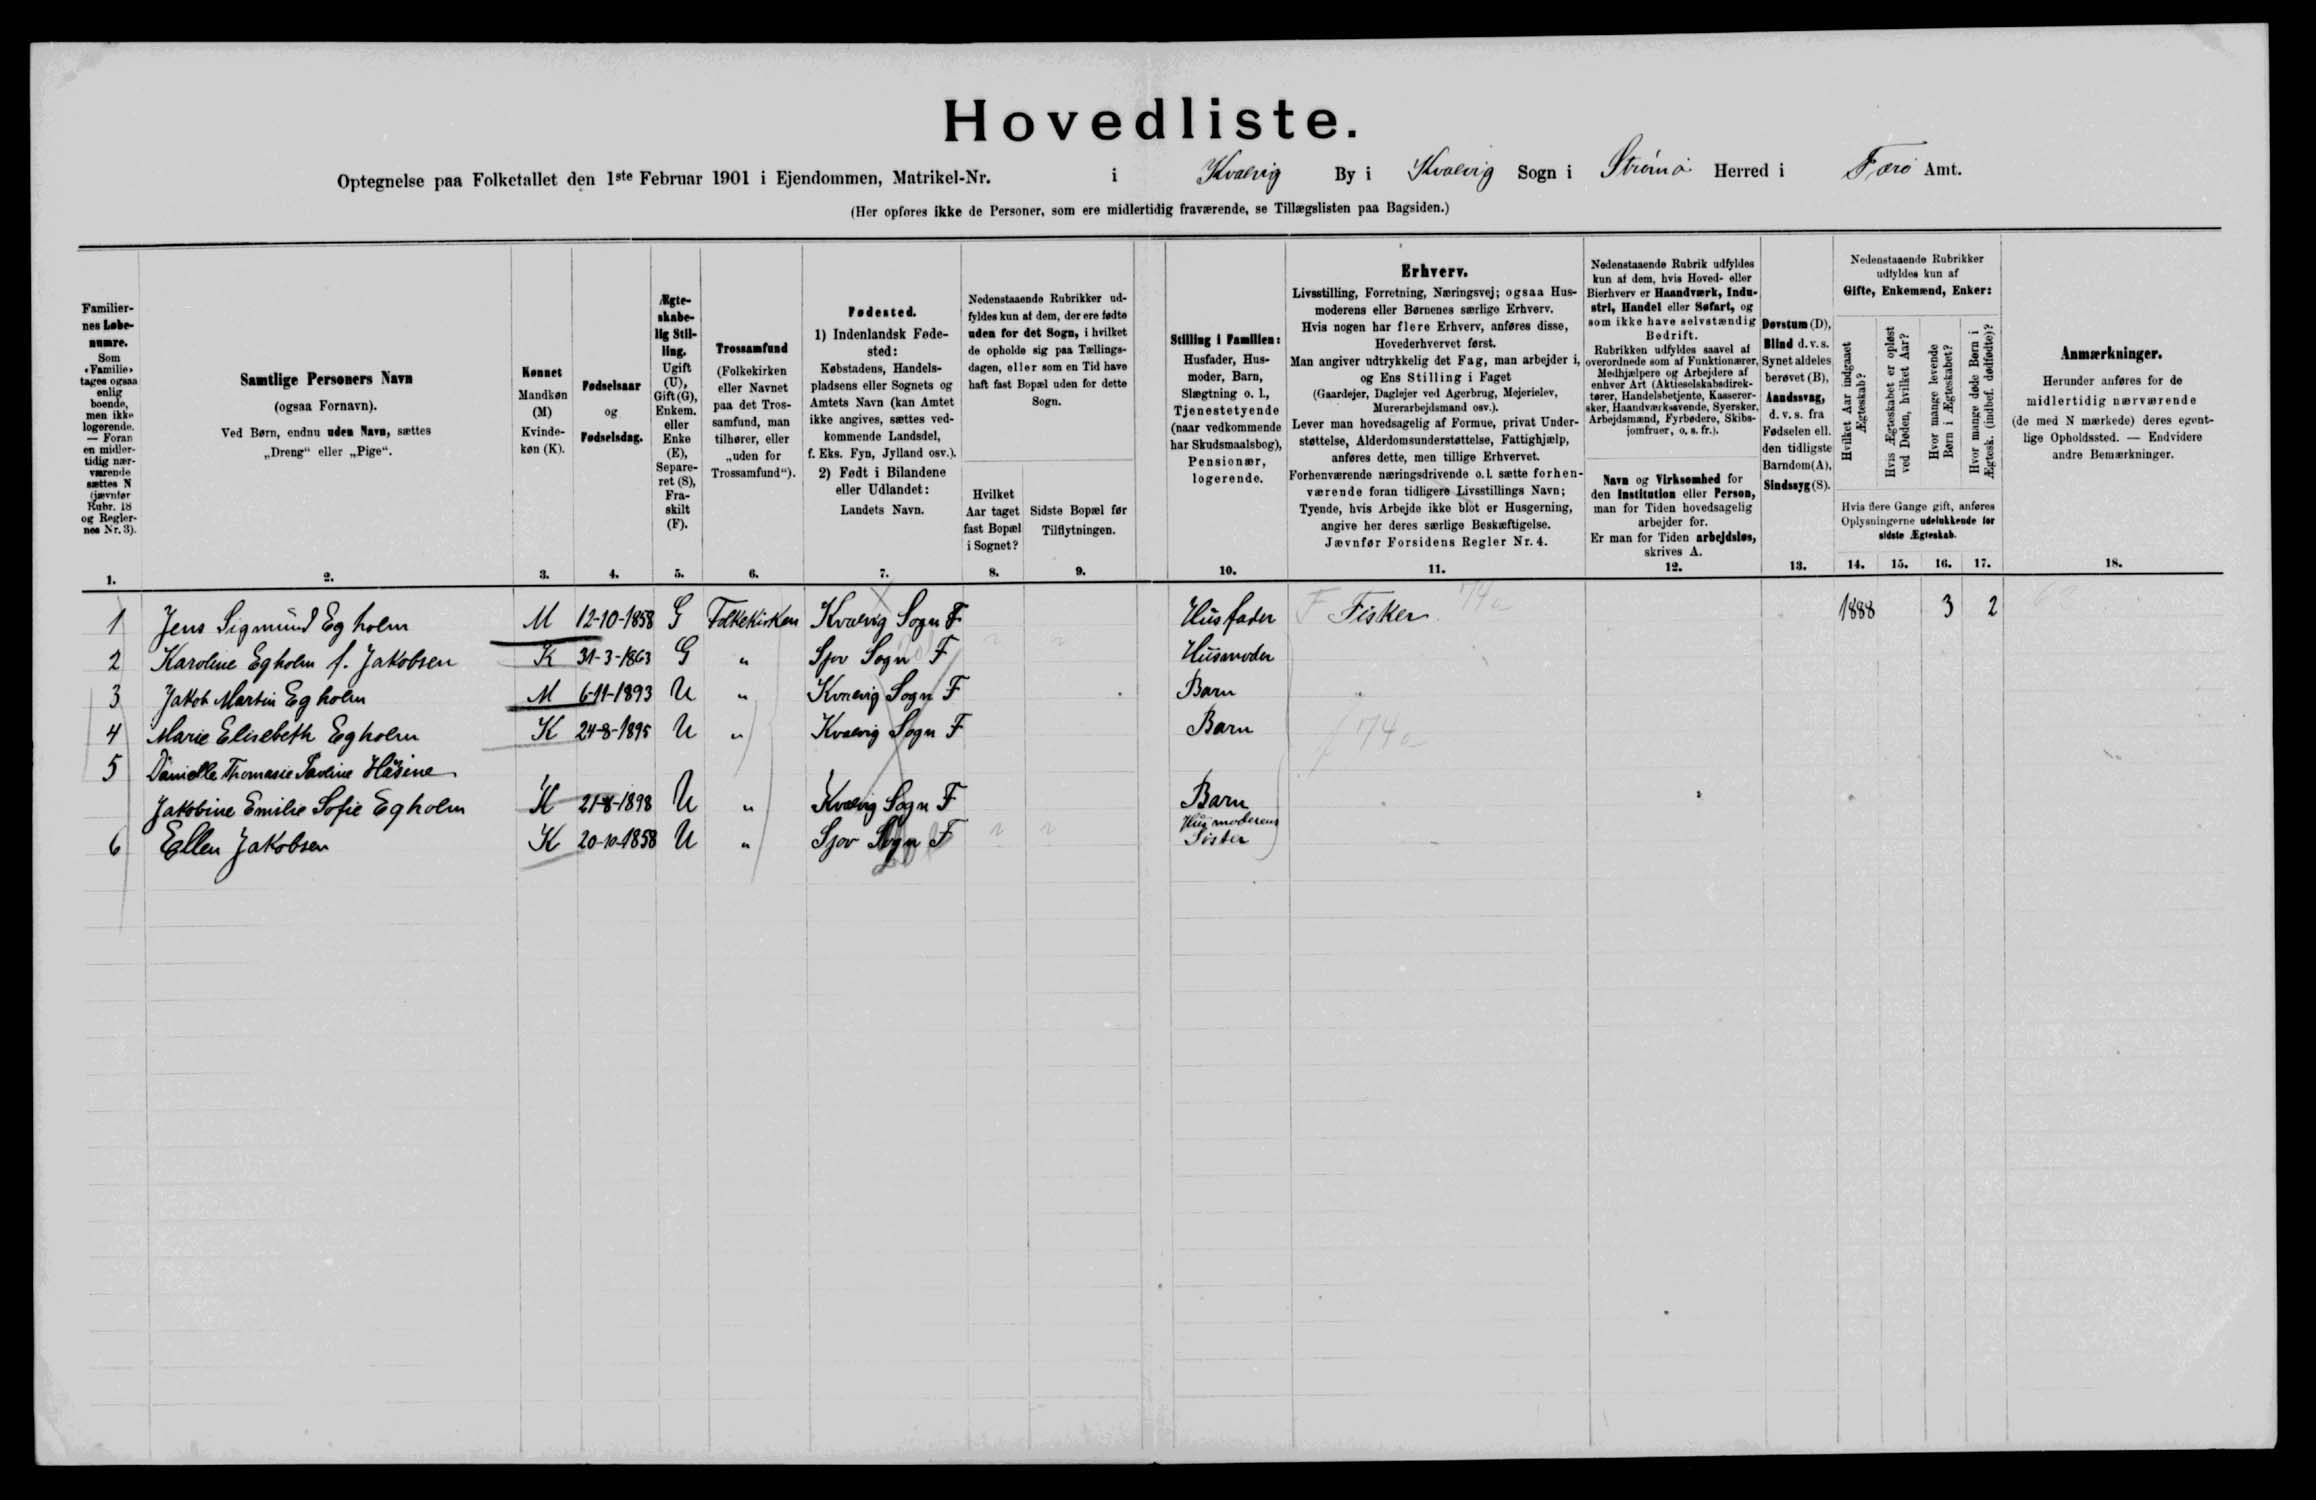 Hovedliste.
Optegnelse paa Folketallet den 1ste Februar 1901 i Ejendommen, Matrikel-Nr. i Kvalvig By i Kvalvig Sogn i Strömö Herred i Færö Amt.
(Her opføres ikke de Personer, som ere midlertidig fraværende, se Tillægslisten paa Bagsiden.)
Familier-
nes Løbe-
numre.
Som
«Familie»
tages ogsaa
enlig
boende,
men ikke
logerende.
— Foran
en midler-
tidig nær-
værende
sættes N
(jævnfør
Rubr. 18
og Regler-
nes Nr. 3).
1.
Samtlige Personers Navn
(ogsaa Fornavn).
Ved Børn, endnu uden Navn, sættes
„Dreng“ eller „Pige“.
2.
Kønnet
Mandkøn
(M)
Kvinde-
køn (K).
3.
Fødselsaar
og
Fødselsdag.
4.
Ægte-
skabe-
lig Stil-
ling.
Ugift
(U),
Gift (G),
Enkem.
eller
Enke
(E),
Separe-
ret (S),
Fra-
skilt
(F).
5.
Trossamfund
(Folkekirken
eller Navnet
paa det Tros-
samfund, man
tilhører, eller
„uden for
Trossamfund“).
6.
Fødested.
1) Indenlandsk Føde-
sted:
Købstadens, Handels-
pladsens eller Sognets og
Amtets Navn (kan Amtet
ikke angives, sættes ved-
kommende Landsdel,
f. Eks. Fyn, Jylland osv.).
2) Født i Bilandene
eller Udlandet:
Landets Navn.
7.
Nedenstaaende Rubrikker ud-
fyldes kun af dem, der ere fødte
uden for det Sogn, i hvilket
de opholde sig paa Tællings-
dagen, eller som en Tid have
haft fast Bopæl uden for dette
Sogn.
Hvilket
Aar taget
fast Bopæl
i Sognet?
8.
Sidste Bopæl før
Tilflytningen.
9.
Stilling i Familien:
Husfader, Hus-
moder, Barn,
Slægtning o. l.,
Tjenestetyende
(naar vedkommende
har Skudsmaalsbog),
Pensionær,
logerende.
10.
Erhverv.
Livsstilling, Forretning, Næringsvej; ogsaa Hus-
moderens eller Børnenes særlige Erhverv.
Hvis nogen har flere Erhverv, anføres disse,
Hovederhvervet først.
Man angiver udtrykkelig det Fag, man arbejder i,
og Ens Stilling i Faget
(Gaardejer, Daglejer ved Agerbrug, Mejerielev,
Murerarbejdsmand osv.).
Lever man hovedsagelig af Formue, privat Under-
støttelse, Alderdomsunderstøttelse, Fattighjælp,
anføres dette, men tillige Erhvervet.
Forhenværende næringsdrivende o. l. sætte forhen-
værende foran tidligere Livsstillings Navn;
Tyende, hvis Arbejde ikke blot er Husgerning,
angive her deres særlige Beskæftigelse.
Jævnfør Forsidens Regler Nr. 4.
11.
Nedenstaaende Rubrik udfyldes
kun af dem, hvis Hoved- eller
Bierhverv er Haandværk, Indu-
stri, Handel eller Søfart, og
som ikke have selvstændig
Bedrift.
Rubrikken udfyldes saavel af
overordnede som af Funktionærer,
Medhjælpere og Arbejdere af
enhver Art (Aktieselskabsdirek-
tører, Handelsbetjente, Kasserer-
sker, Haandværkssvende, Syersker,
Arbejdsmænd, Fyrbødere, Skibs-
jomfruer, o. s. fr.).
Navn og Virksomhed for
den Institution eller Person,
man for Tiden hovedsagelig
arbejder for.
Er man for Tiden arbejdsløs,
skrives A.
12.
Døvstum (D),
Blind d. v. s.
Synet aldeles
berøvet (B),
Aandssvag,
d. v. s. fra
Fødselen ell.
den tidligste
Barndom (A),
Sindssyg (S).
13.
Nedenstaaende Rubrikker
udfyldes kun af
Gifte, Enkemænd, Enker:
Hvilket Aar indgaaet
Ægteskab?
Hvis Ægteskabet er opløst
ved Døden, hvilket Aar?
Hvor mange levende
Børn i Ægteskabet?
Hvor mange døde Børn i
Ægtesk. (indbef. dødfødte)?
Hvis flere Gange gift, anføres
Oplysningerne udelukkende for
sidste Ægteskab.
14. 15. 16. 17.
Anmærkninger.
Herunder anføres for de
midlertidig nærværende
(de med N mærkede) deres egent-
lige Opholdssted. — Endvidere
andre Bemærkninger.
18.
1 Jens Sigmund Egholm M 12-10-1858 G Folkekirken Kvalvig Sogn F Husfader F Fisker 74a 1888 3 2
2 Karoline Egholm f. Jakobsen K 31-3-1863 G " Sjov Sogn F Husmoder
3 Jakob Martin Egholm M 6-11-1893 U " Kvalvig Sogn F Barn "
4 Marie Elisebeth Egholm K 24-8-1895 U " Kvalvig Sogn F Barn 74a
5 Danielle Thomasie Pauline
Jakobine Emilie Sofie Egholm K 21-8-1898 U " Kvalvig Sogn F Barn
6 Ellen Jakobsen K 20-10-1858 U " Sjov Sogn F Husmoderens
Söster